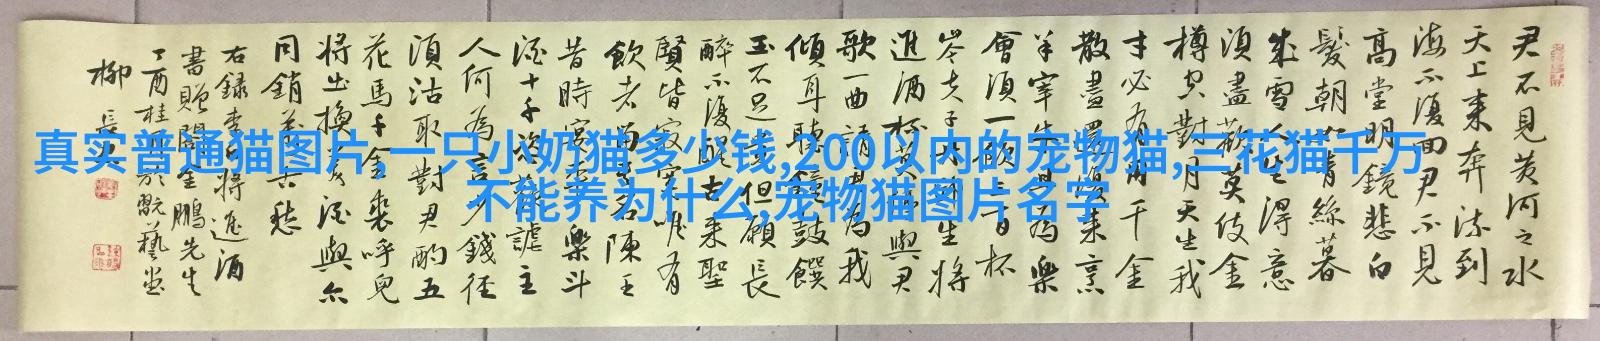 真实普通猫图片,一只小奶猫多少钱,200以内的宠物猫,三花猫千万
不能养为什么,宠物猫图片名字
君不見黃河之水
天上来奔流到
海不復回君不見
高堂明鏡悲白
髮朝如青絲暮
成雪人生得意
須盡歡莫使金
樽空對月天生我
才必有用千金
散盡還復来烹
羊宰牛且為樂
會須一飲三百杯
岑夫子丹丘生將
進酒杯莫停與君
歌一曲請君為我
傾耳聽鐘鼓饌
玉不足貴但願長
醉不復醒古来聖
賢皆寂寞唯有
飲者留其名陳王
昔時宴平樂斗
酒十千恣歡謔主
人何為言少錢径
須沽取對君酌五
花馬千金裘呼兒
將出換美酒與尔
同銷萬古愁
右録李白將進酒
書贈閣金鵬先生
丁酉桂月於翫藝堂
柳長